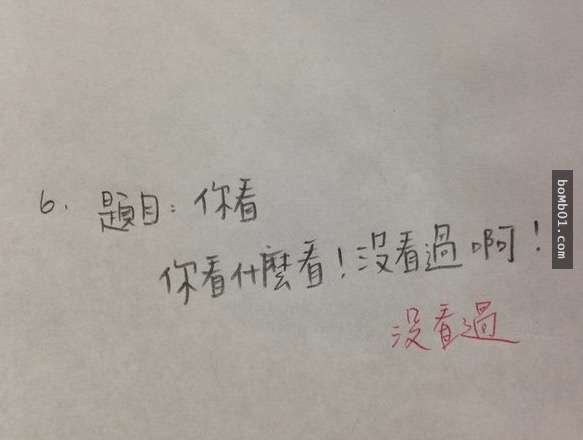 6. 題目：你看
你看什麼看！沒看過啊！
沒看過
boMb01.com